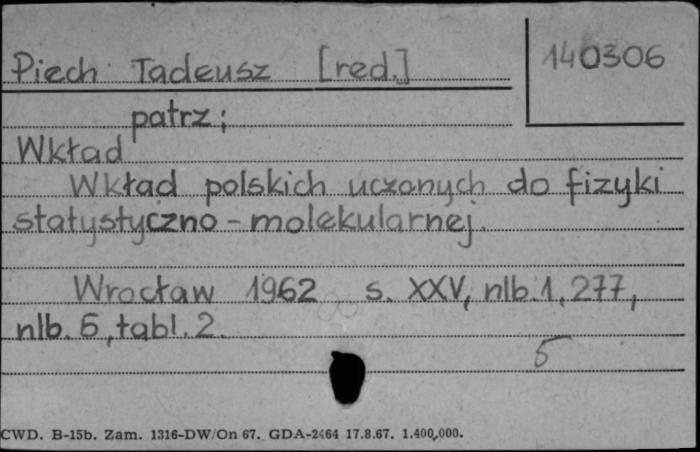 Piech Tadeusz [red.]
140306
patrz;
Wkład
Wkład polskich uczonych do fizyki
statystyczno-molekularnej.
Wrocław 1962 s. XXV, nlb.1, 277,
nlb. 5, tabl. 2.
5
CWD. B-15b. Zam. 1316-DW/On 67. GDA-2464 17.8.67. 1.400,000.